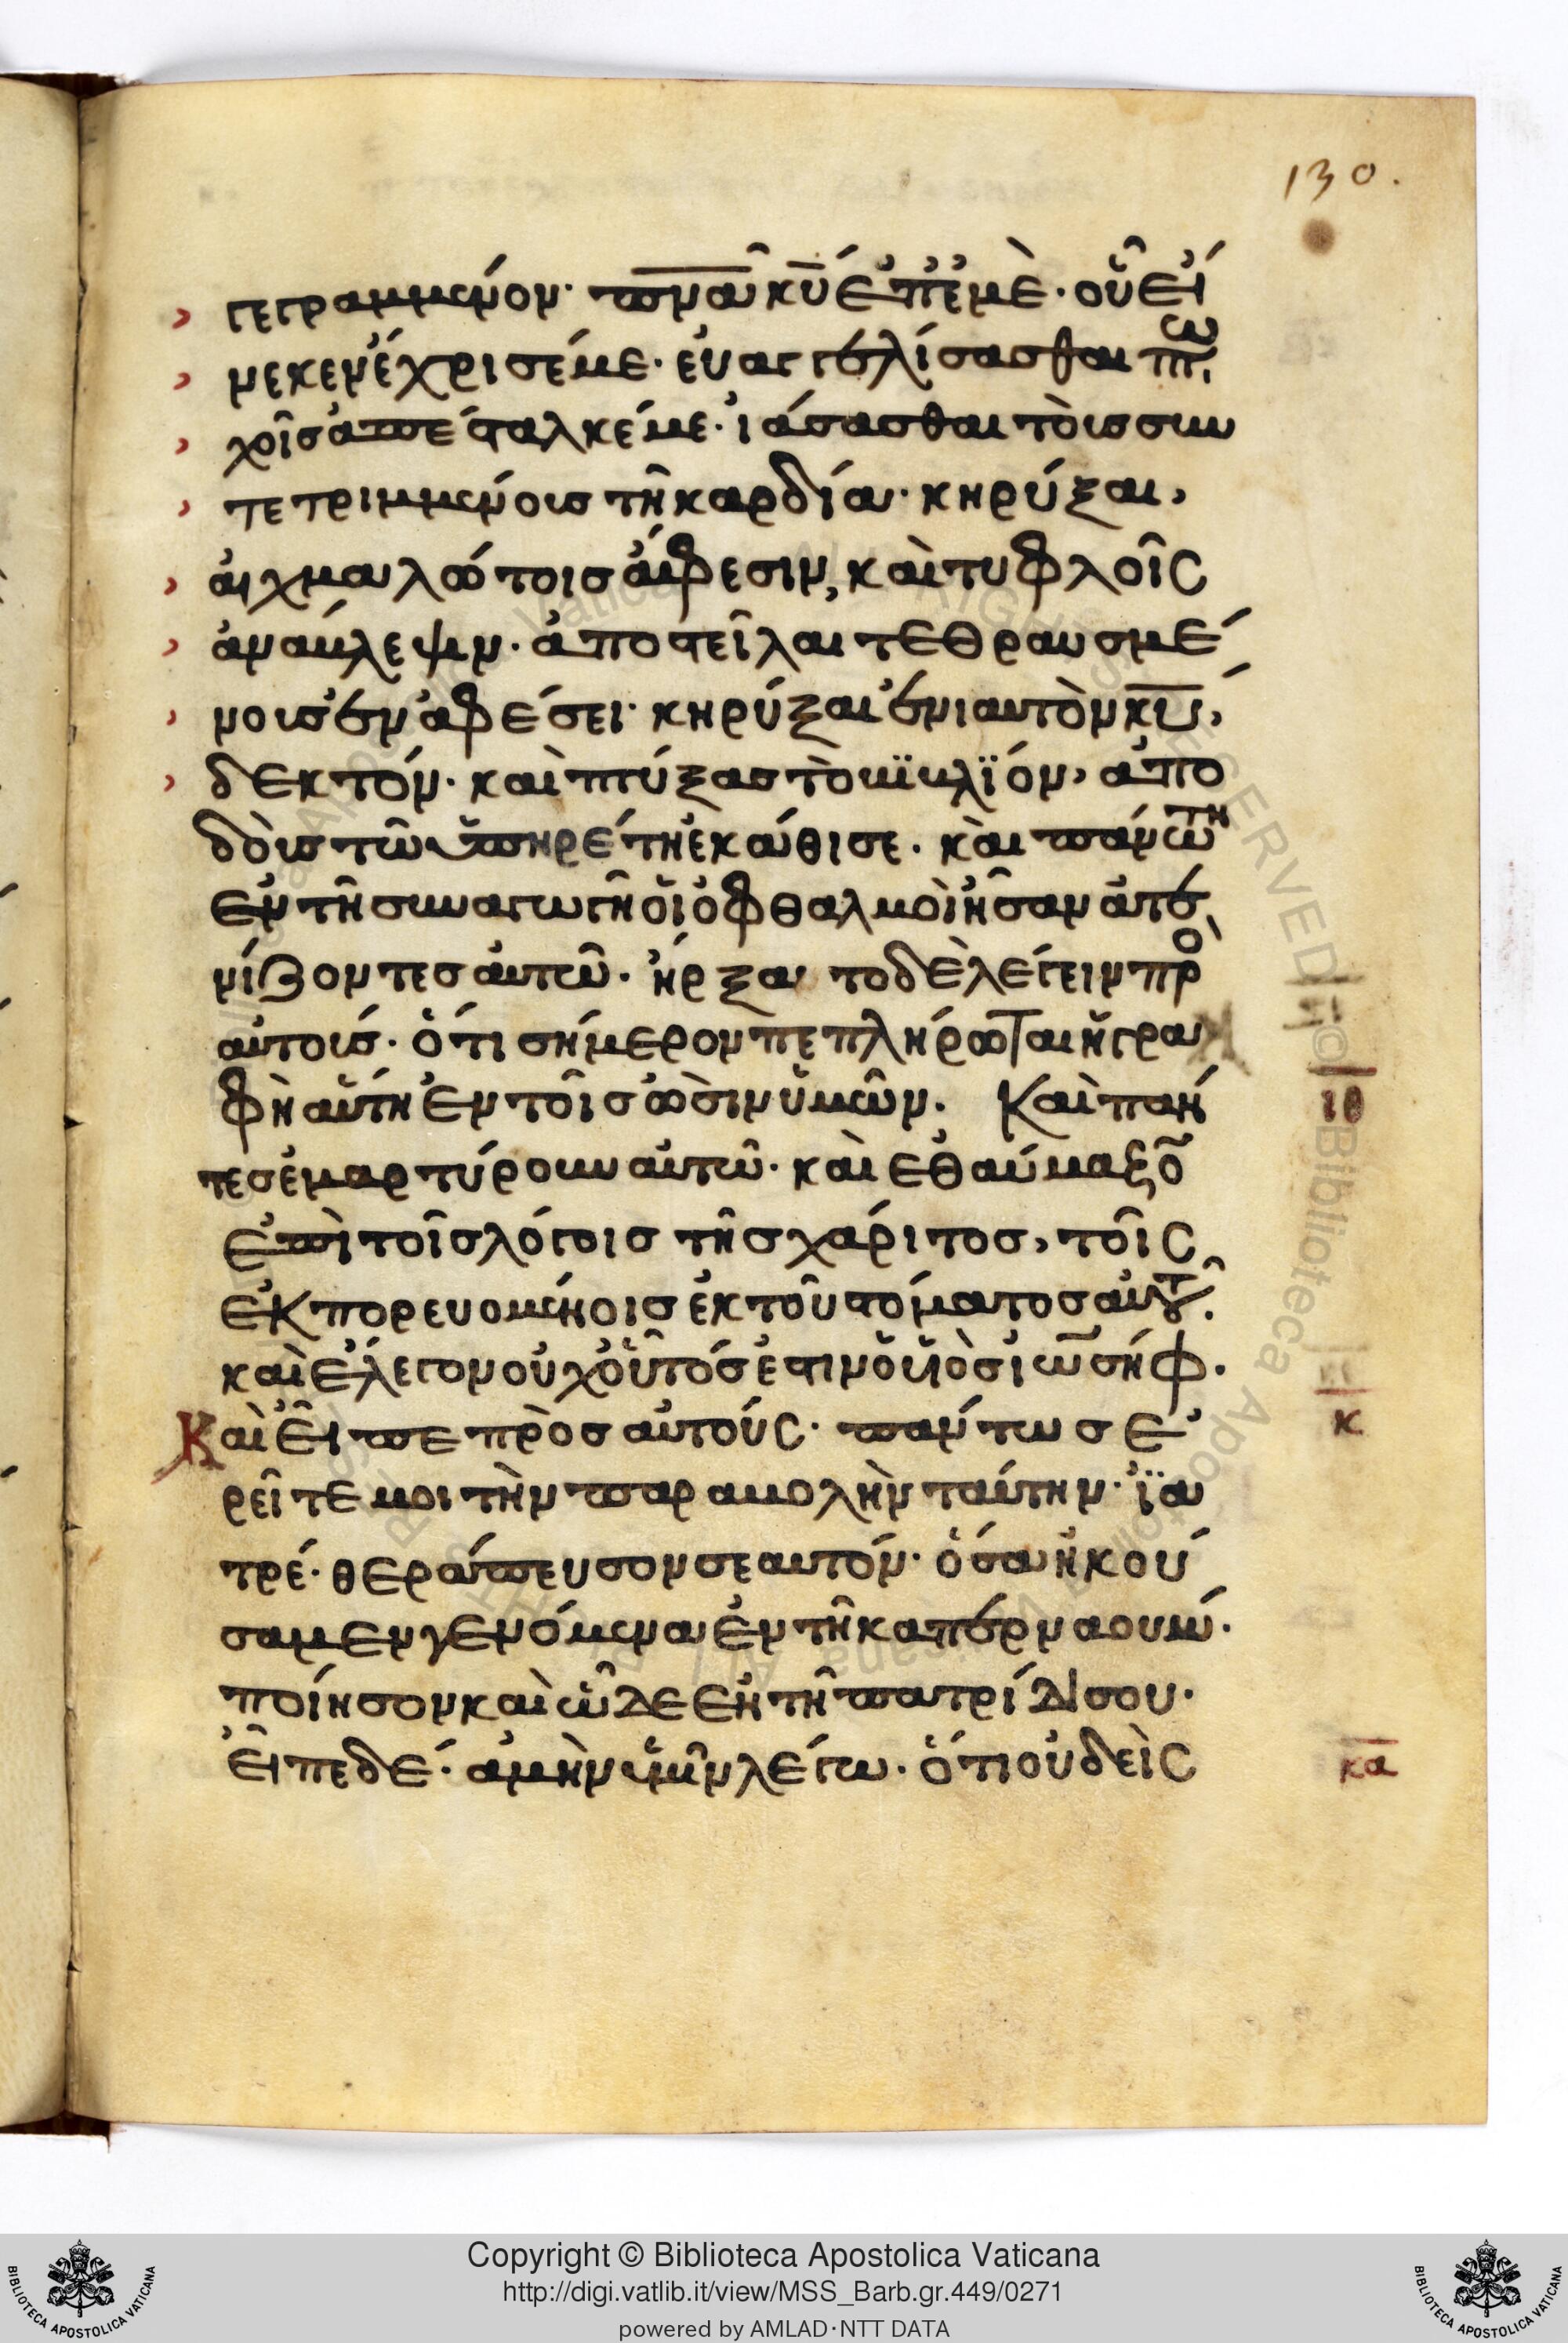 130.
γεγραμμένον· πν̅α κ̅υ ἐπ' ἐμὲ· οὗ εἵ
νεκεν ἔχρισέ με· εὐαγγελίσασθαι πτω
χοῖς ἀπέσταλκέ με· ἰάσασθαι τοὺς συν
τετριμμένους τὴν καρδίαν· κηρύξαι,
αἰχμαλώτοις ἄφεσιν, καὶ τυφλοῖς
ἀνάβλεψιν· ἀποστεῖλαι τεθραυσμέ
νους ἐν ἀφέσει· κηρύξαι ἐνιαυτὸν κ̅υ,
δεκτόν· καὶ πτύξας τὸ βιβλίον, ἀπο
δοὺς τῶ ὑπηρέτη ἐκάθισε· καὶ πάντων
ἐν τῆ συναγωγῆ οἱ ὀφθαλμοὶ ἦσαν ἀτε
νίζοντες αὐτῶ· ἤρξατο δὲ λέγειν πρὸ
αὐτούς· ὅτι σήμερον πεπλήρωται ἡ γρα
φὴ αὕτη ἐν τοῖς ὠσὶν ὑμῶν. Καὶ πάν
ιθ
τες ἐμαρτύρουν αὐτῶ· καὶ ἐθαύμαζο̅
ἐπὶ τοῖς λόγοις τῆς χάριτος, τοῖς
ἐκπορευομένοις ἐκ τοῦ στόματος αὐτοῦ.
καὶ ἔλεγον οὐχ οὗτός ἐστιν ὁ υἱὸς ἰωσήφ.
Καὶ εἶπε πρὸς αὐτούς· πάντως ἐ
κ
ρεῖτέ μοι τὴν παραβολὴν ταύτην· ἰα
τρέ· θεράπευσον σεαυτόν· ὅσα ἠκού
σαμεν γενόμενα ἐν τῆ καπερναούμ·
ποίησον καὶ ὧδε ἐν τῆ πατρίδι σου·
εἶπε δέ· ἀμὴν ὑμῖν λέγω· ὅτι οὐδεὶς
κα
Copyright © Biblioteca Apostolica Vaticana
http://digi.vatlib.it/view/MSS_Barb.gr.449/0271
powered by AMLAD·NTT DATA
BIBLIOTECA APOSTOLICA VATICANA
BIBLIOTECA APOSTOLICA VATICANA